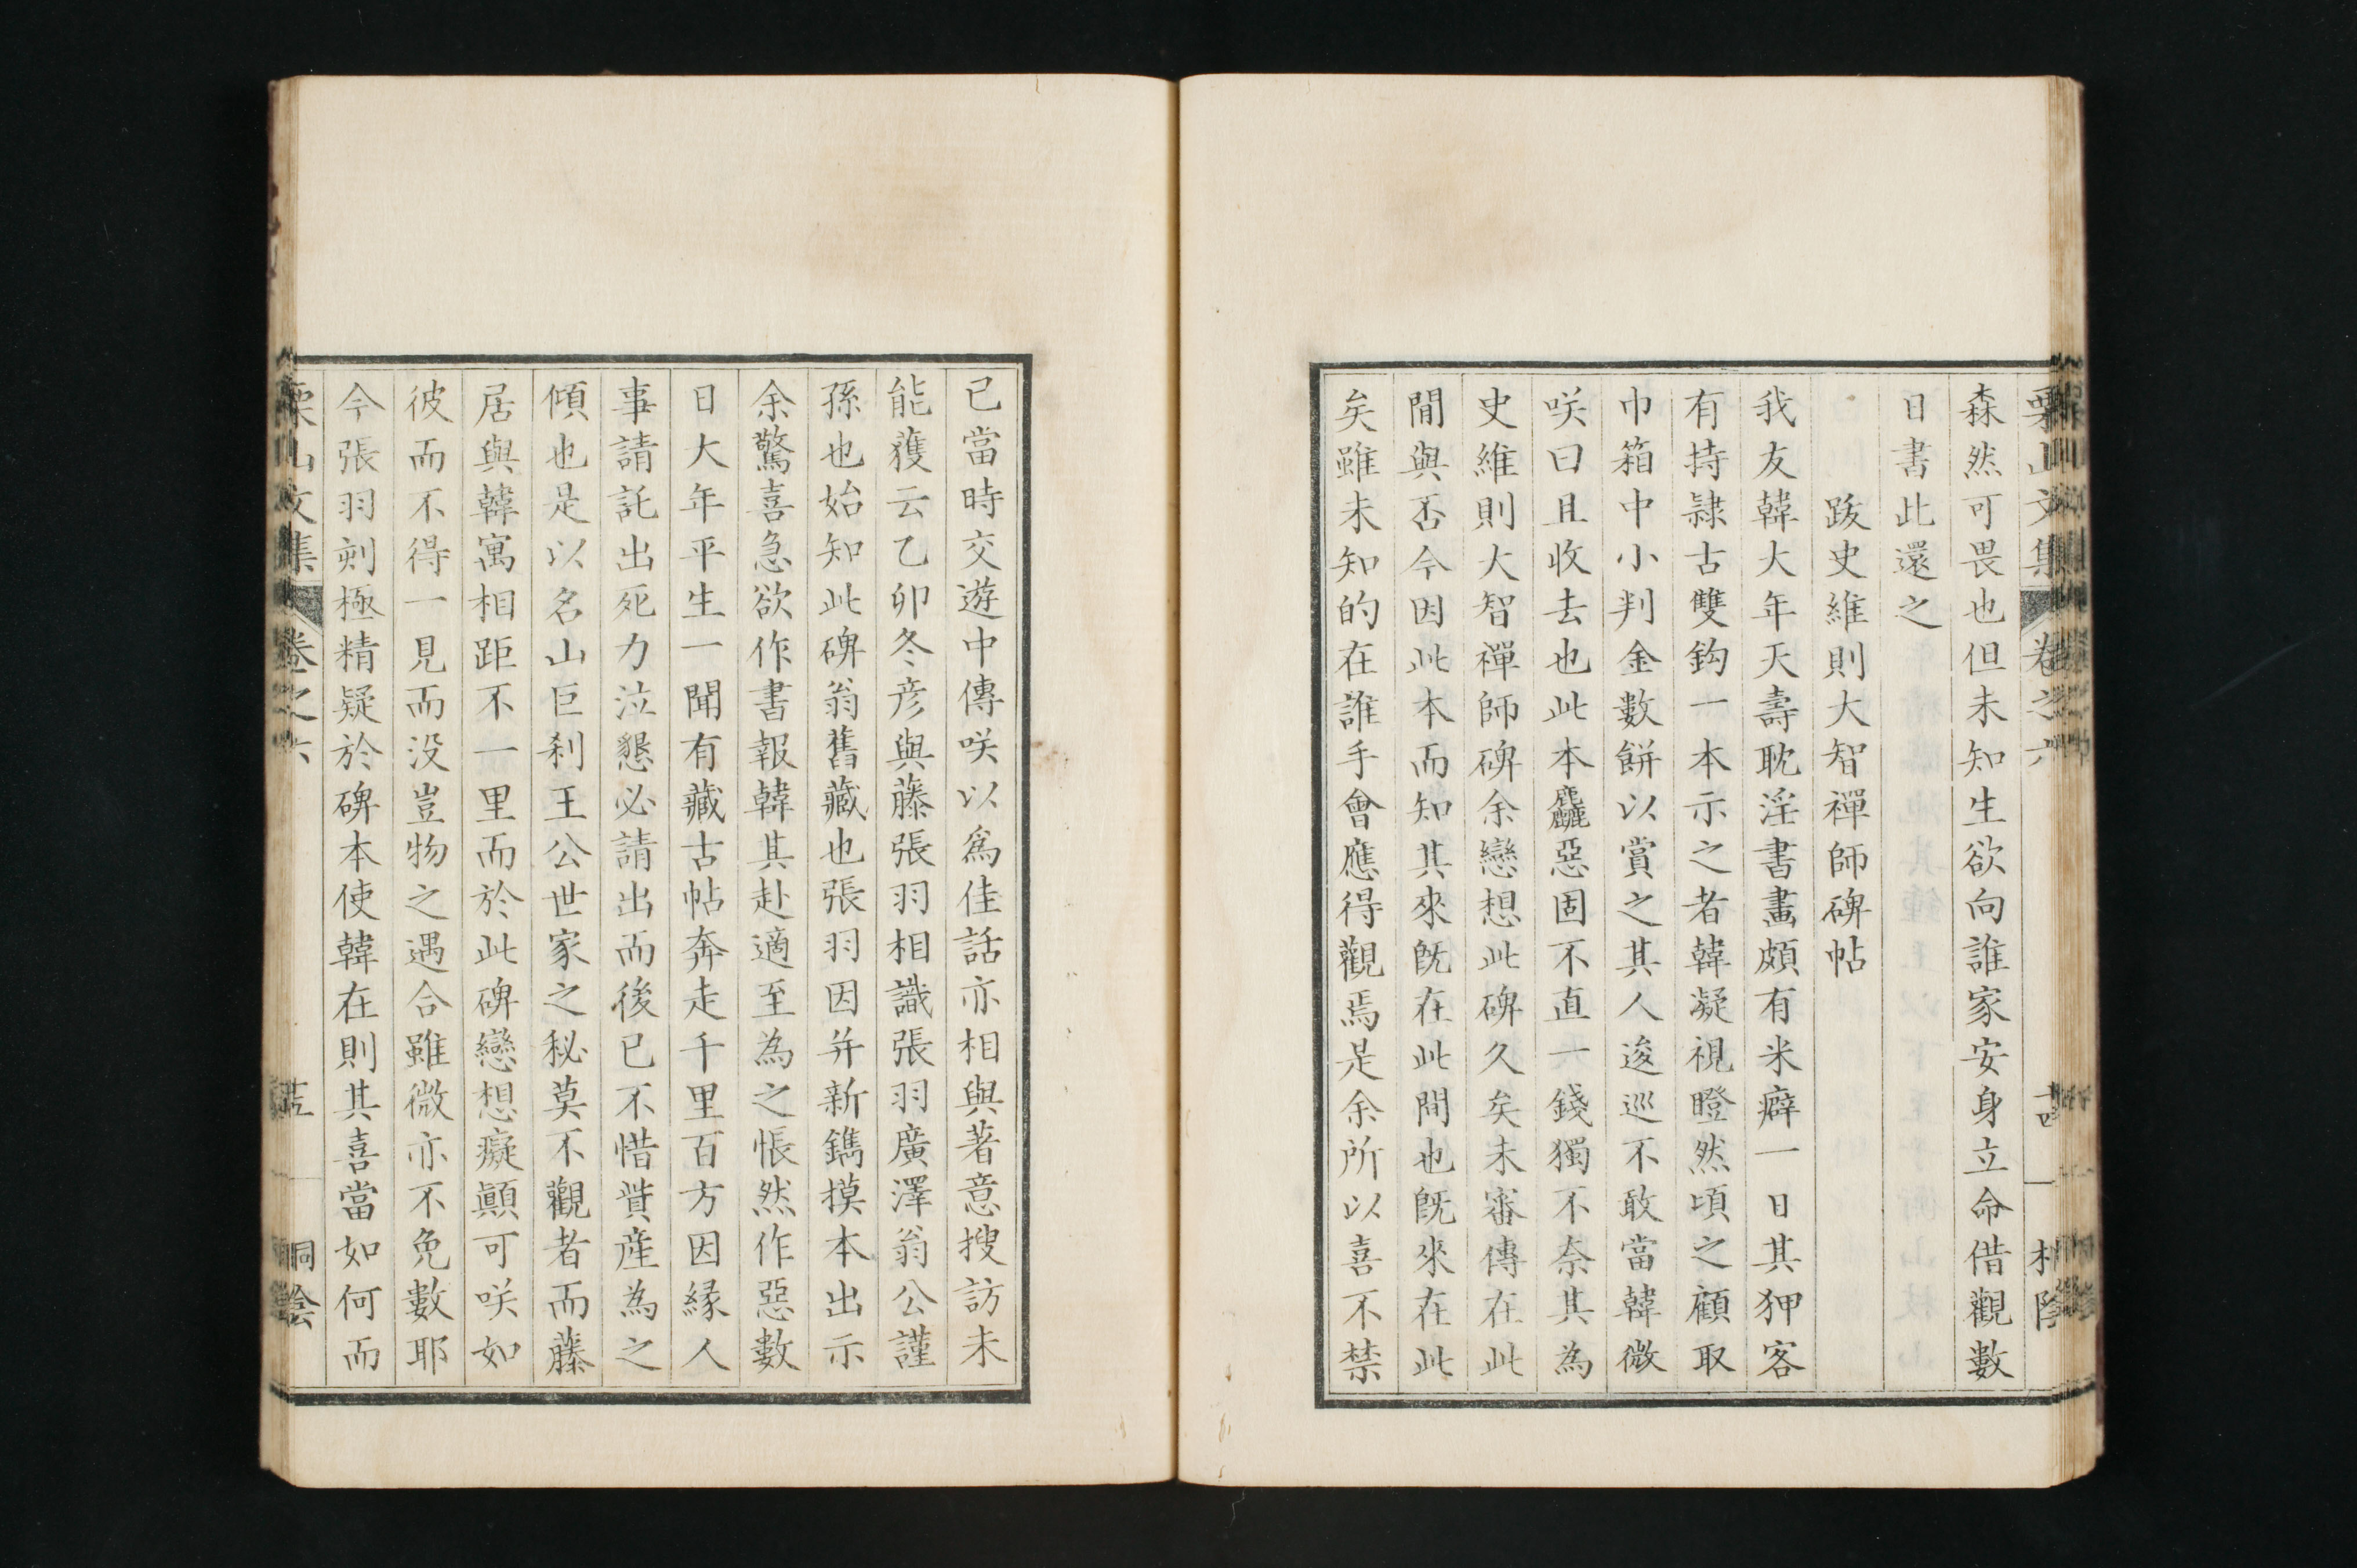 栗山文集 卷之六
森然可畏也但未知生欲向誰家安身立命借觀數
日書此還之
跋史維則大智禪師碑帖
我友韓大年天壽耽淫書畫頗有米癖一日其狎客
有持隷古雙鈎一本示之者韓凝視瞪然頃之顧取
巾箱中小判金數餅以賞之其人逡巡不敢當韓微
咲曰且收去也此本麤惡固不直一錢獨不奈其為
史維則大智禪師碑余戀想此碑久矣未審傳在此
間與否今因此本而知其來既在此間也既來在此
矣雖未知的在誰手會應得觀焉是余所以喜不禁
已當時交遊中傳咲以爲佳話亦相與著意搜訪未
能獲云乙卯冬彦與藤張羽相識張羽廣澤翁公謹
孫也始知此碑翁舊藏也張羽因并新鐫摸本出示
余驚喜急欲作書報韓其赴適至為之悵然作惡數
日大年平生一聞有藏古帖奔走千里百方因縁人
事請託出死力泣懇必請出而後已不惜貲産為之
傾也是以名山巨刹王公世家之秘莫不觀者而藤
居與韓寓相距不一里而於此碑戀想癡顚可咲如
彼而不得一見而没豈物之遇合雖微亦不免數耶
今張羽刻極精疑於碑本使韓在則其喜當如何而
栗山文集 卷之六 桐陰